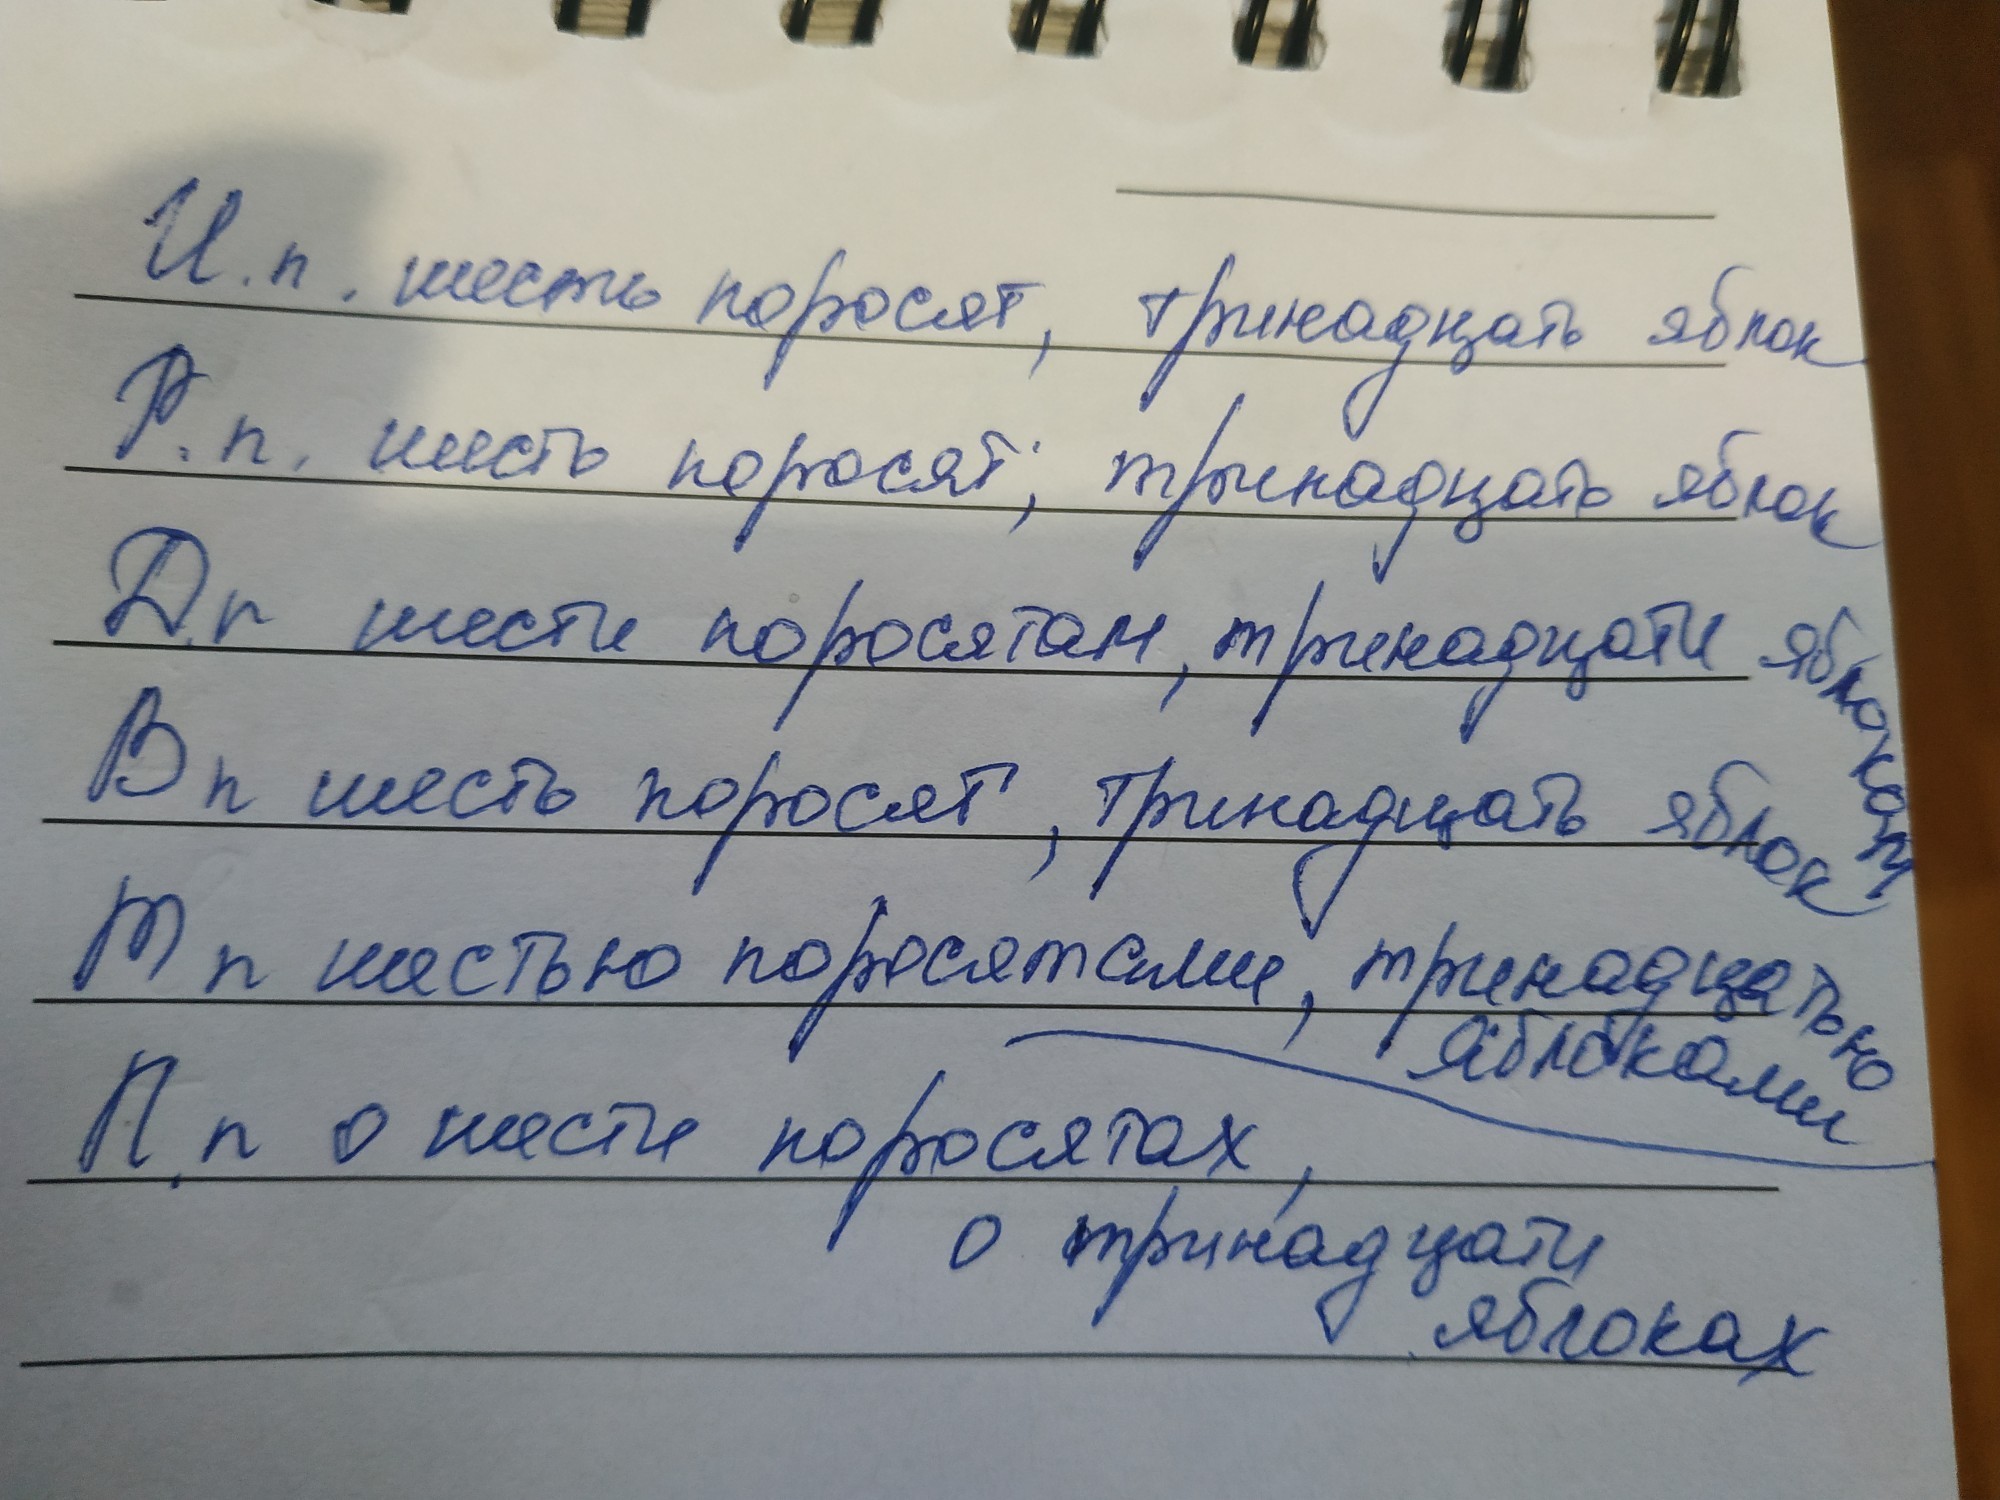 И.п. шесть поросят, тринадцать яблок
Р.п. шесть поросят, тринадцать яблок
Д.п шести поросятам, тринадцати яблокам
В п шесть поросят, тринадцать яблок
Т п шестью поросятами, тринадцатью
яблоками
П.п о шести поросятах,
о тринадцати
яблоках